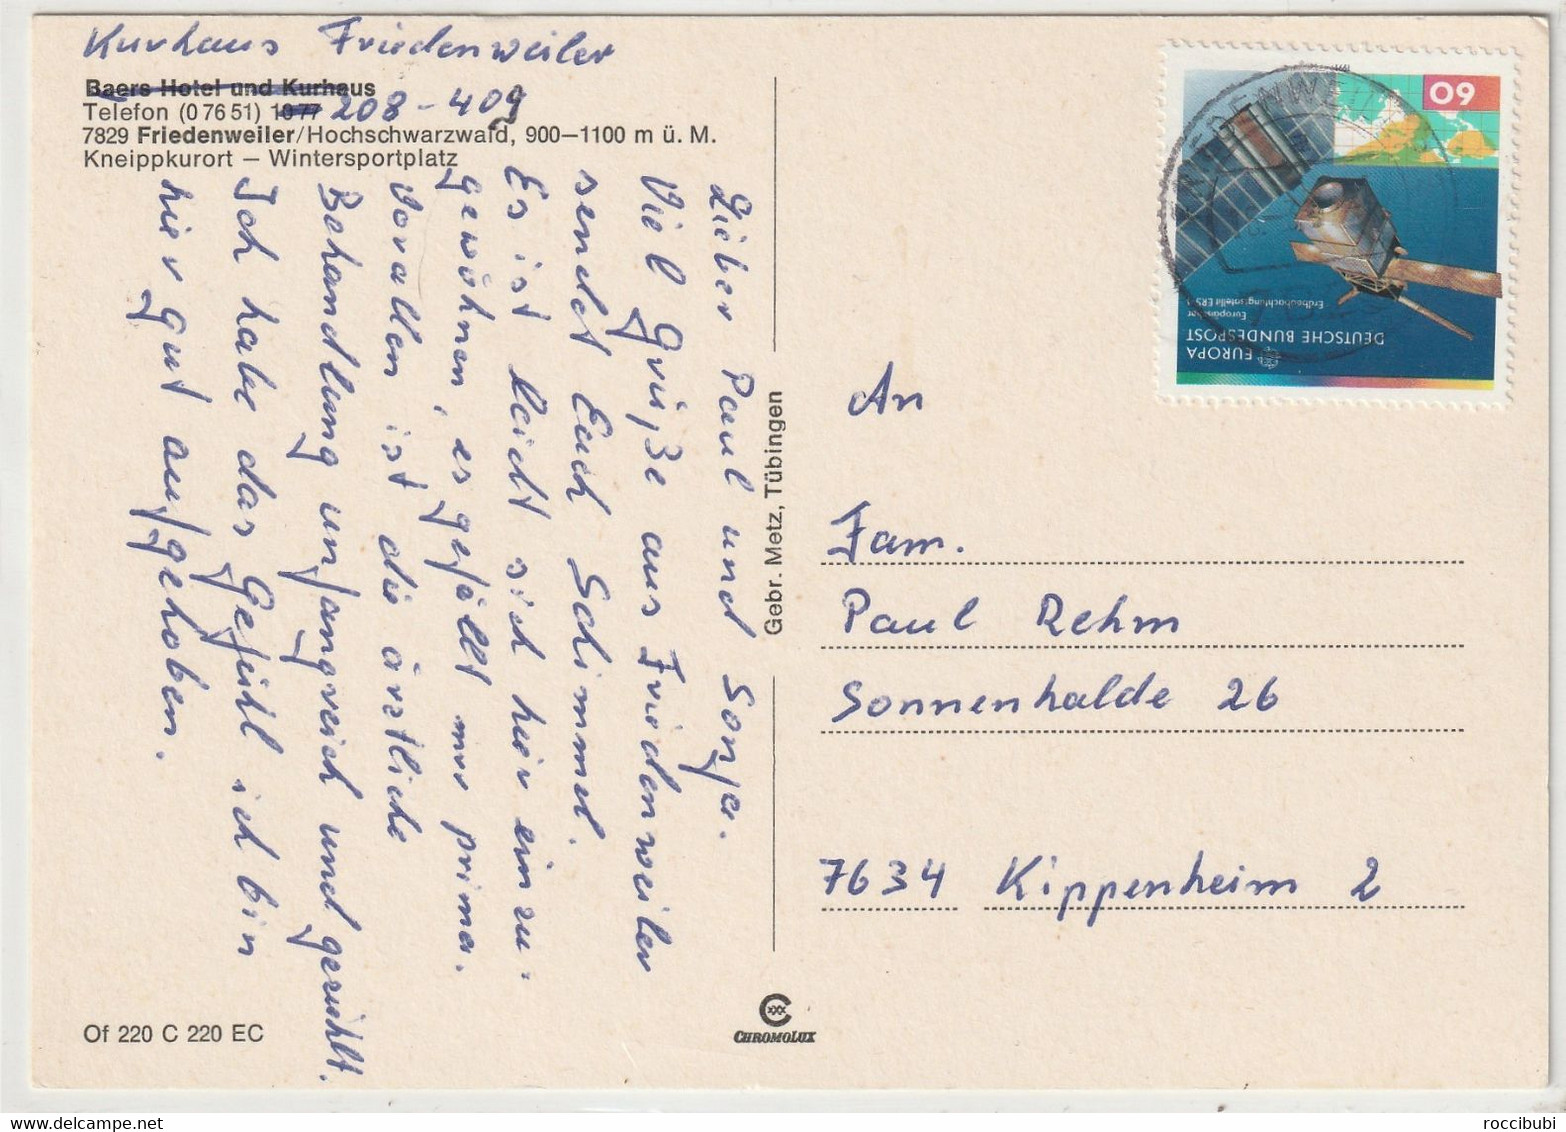 Kurhaus Friedenweiler
Baers Hotel und Kurhaus
Telefon (0 76 51) 1077 208-409
7829 Friedenweiler/Hochschwarzwald, 900–1100 m ü. M.
Kneippkurort – Wintersportplatz
Lieber Paul und Sonja.
Viel Grüße aus Friedenweiler
sendet Euch Schimmel.
Es ist leicht sich hier einzu-
gewöhnen, es gefällt mir prima.
Vorallen ist die ärztliche
Behandlung umfangreich und gezielt.
Ich habe das Gefühl ich bin
hier gut aufgehoben.
Gebr. Metz, Tübingen
Of 220 C 220 EC
CHROMOLUX
60
Europäischer
Erdbeobachtungssatellit ERS-1
EUROPA
DEUTSCHE BUNDESPOST
An
Fam.
Paul Rehm
Sonnenhalde 26
7634 Kippenheim 2
roccibubi